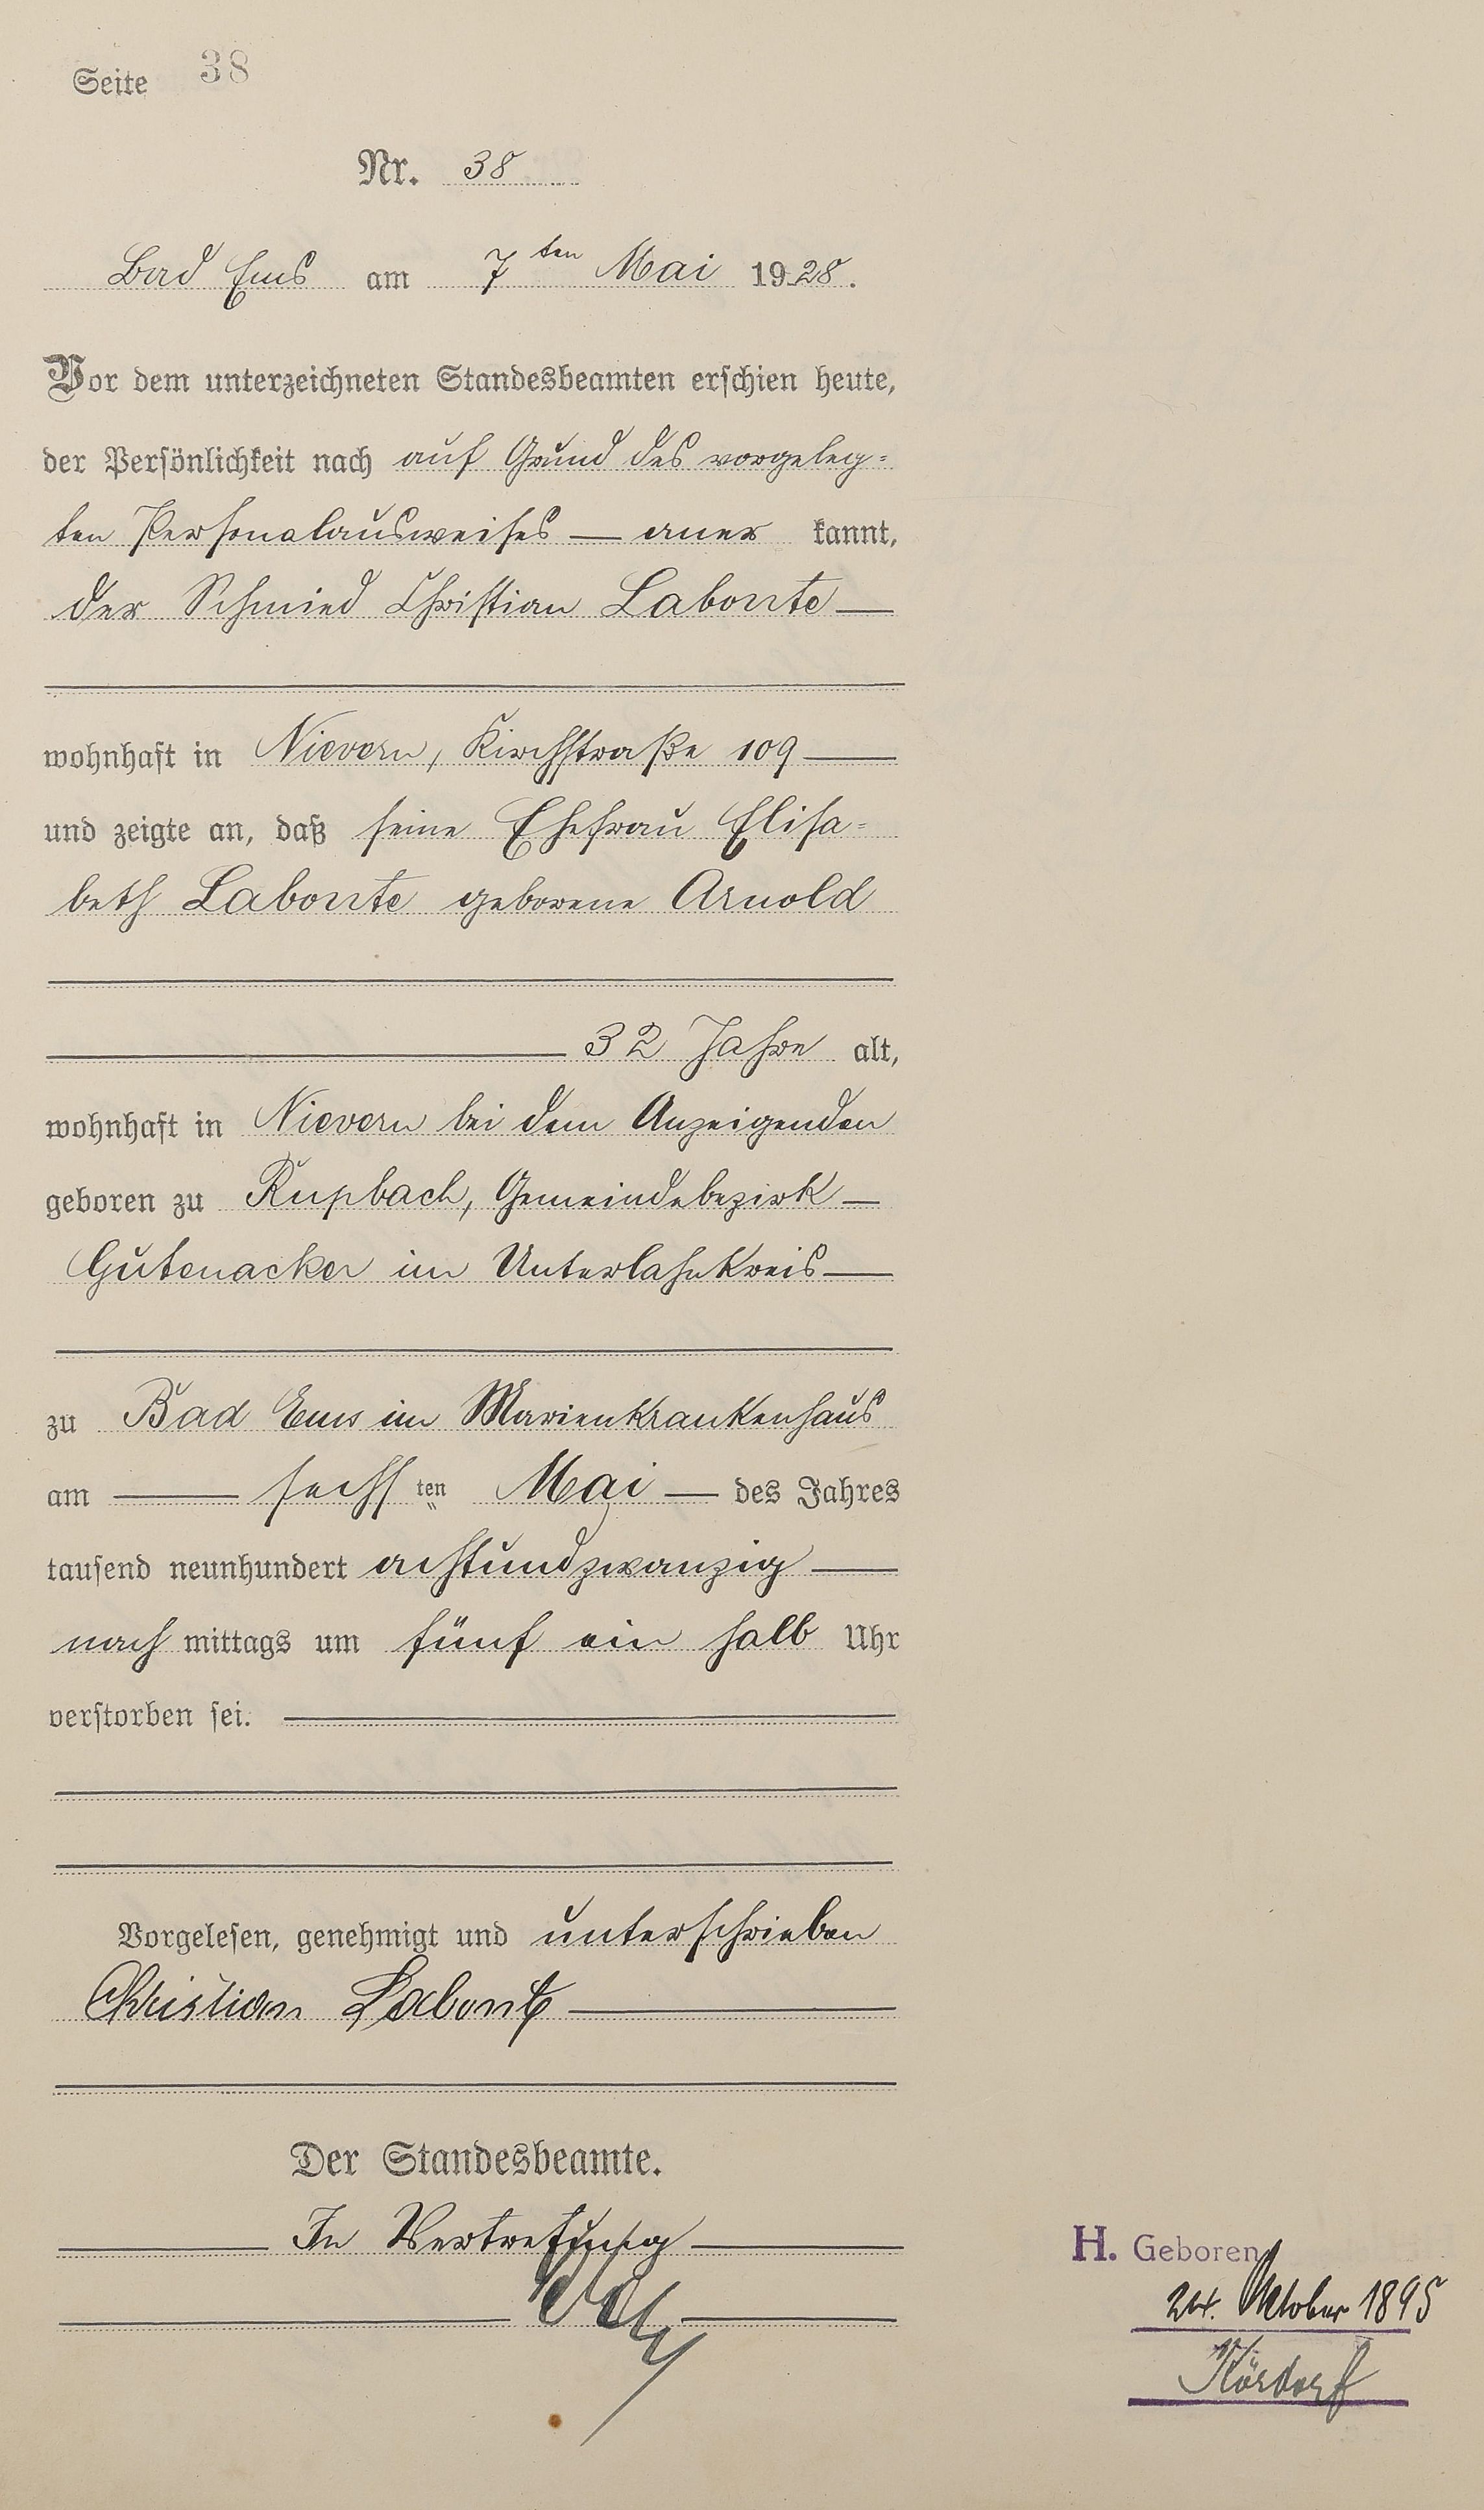 Seite 38
Nr. 38
Bad Ems am 7ten Mai 1928.
Vor dem unterzeichneten Standesbeamten erschien heute,
der Persönlichkeit nach auf Grund des vorgeleg=
ten Personalausweises — aner kannt,
der Schmied Christian Labonte —
wohnhaft in Nievern, Kirchstraße 109 —
und zeigte an, daß seine Ehefrau Elisa=
beth Labonte geborene Arnold
— 32 Jahre alt,
wohnhaft in Nievern bei dem Anzeigenden
geboren zu Rupbach, Gemeindebezirk —
Gutenacker im Unterlahnkreis —
zu Bad Ems im Marienkrankenhaus
am — sechsten Mai — des Jahres
tausend neunhundert achtundzwanzig —
nach mittags um fünf ein halb Uhr
verstorben sei. —
Vorgelesen, genehmigt und unterschrieben
Christian Labonte —
Der Standesbeamte.
— In Vertretung —
H. Geboren
24. Oktober 1895
Kördorf